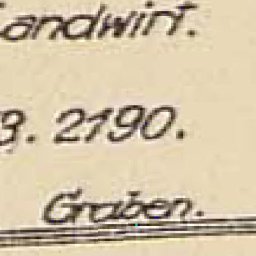 Landwirt.
B. 2190.
Graben.